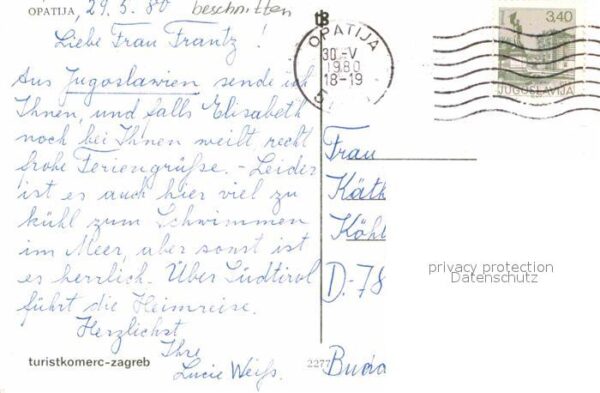 OPATIJA, 29.5.80 beschnitten
Liebe Frau Frantz!
Aus Jugoslawien sende ich
Ihnen, und falls Elisabeth
noch bei Ihnen weilt, recht
frohe Feriengrüße. - Leider
ist es auch hier viel zu
kühl zum Schwimmen
im Meer, aber sonst ist
es herrlich. Über Südtirol
führt die Heimreise.
Herzlichst
Ihre
Lucie Weiß.
turistkomerc-zagreb
2277
OPATIJA
30.-V
1980
18-19
3,40
JUGOSLAVIJA
Frau
Käth
Köhl
D.-78
privacy protection
Datenschutz